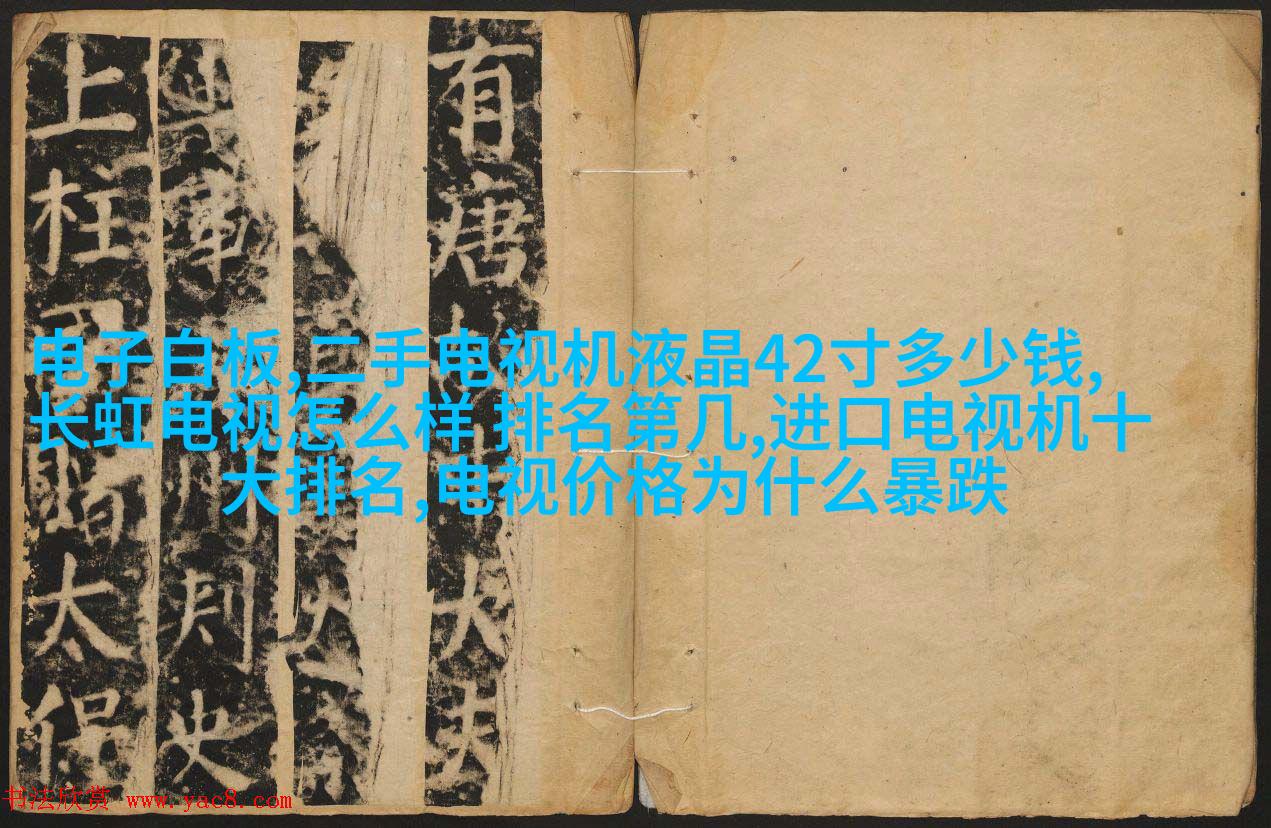 有唐大夫
軍州刺史
上柱國贈太保
电子白板,二手电视机液晶42寸多少钱,
长虹电视怎么样 排名第几,进口电视机十
大排名,电视价格为什么暴跌
书法欣赏 www.yac8.com